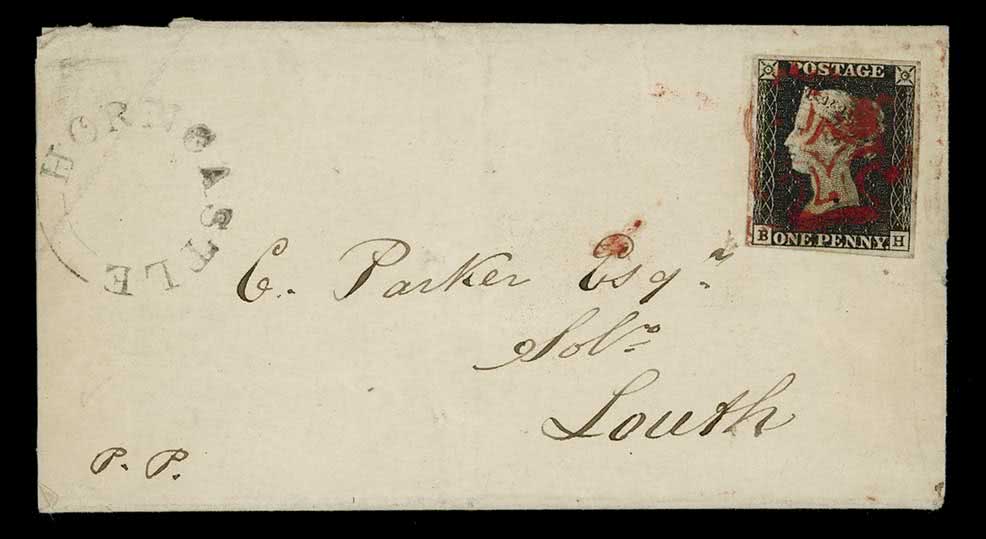 HORNCASTLE
POSTAGE
B ONE PENNY. H
E. Parker Esqr.
Solr.
Louth
P. P.